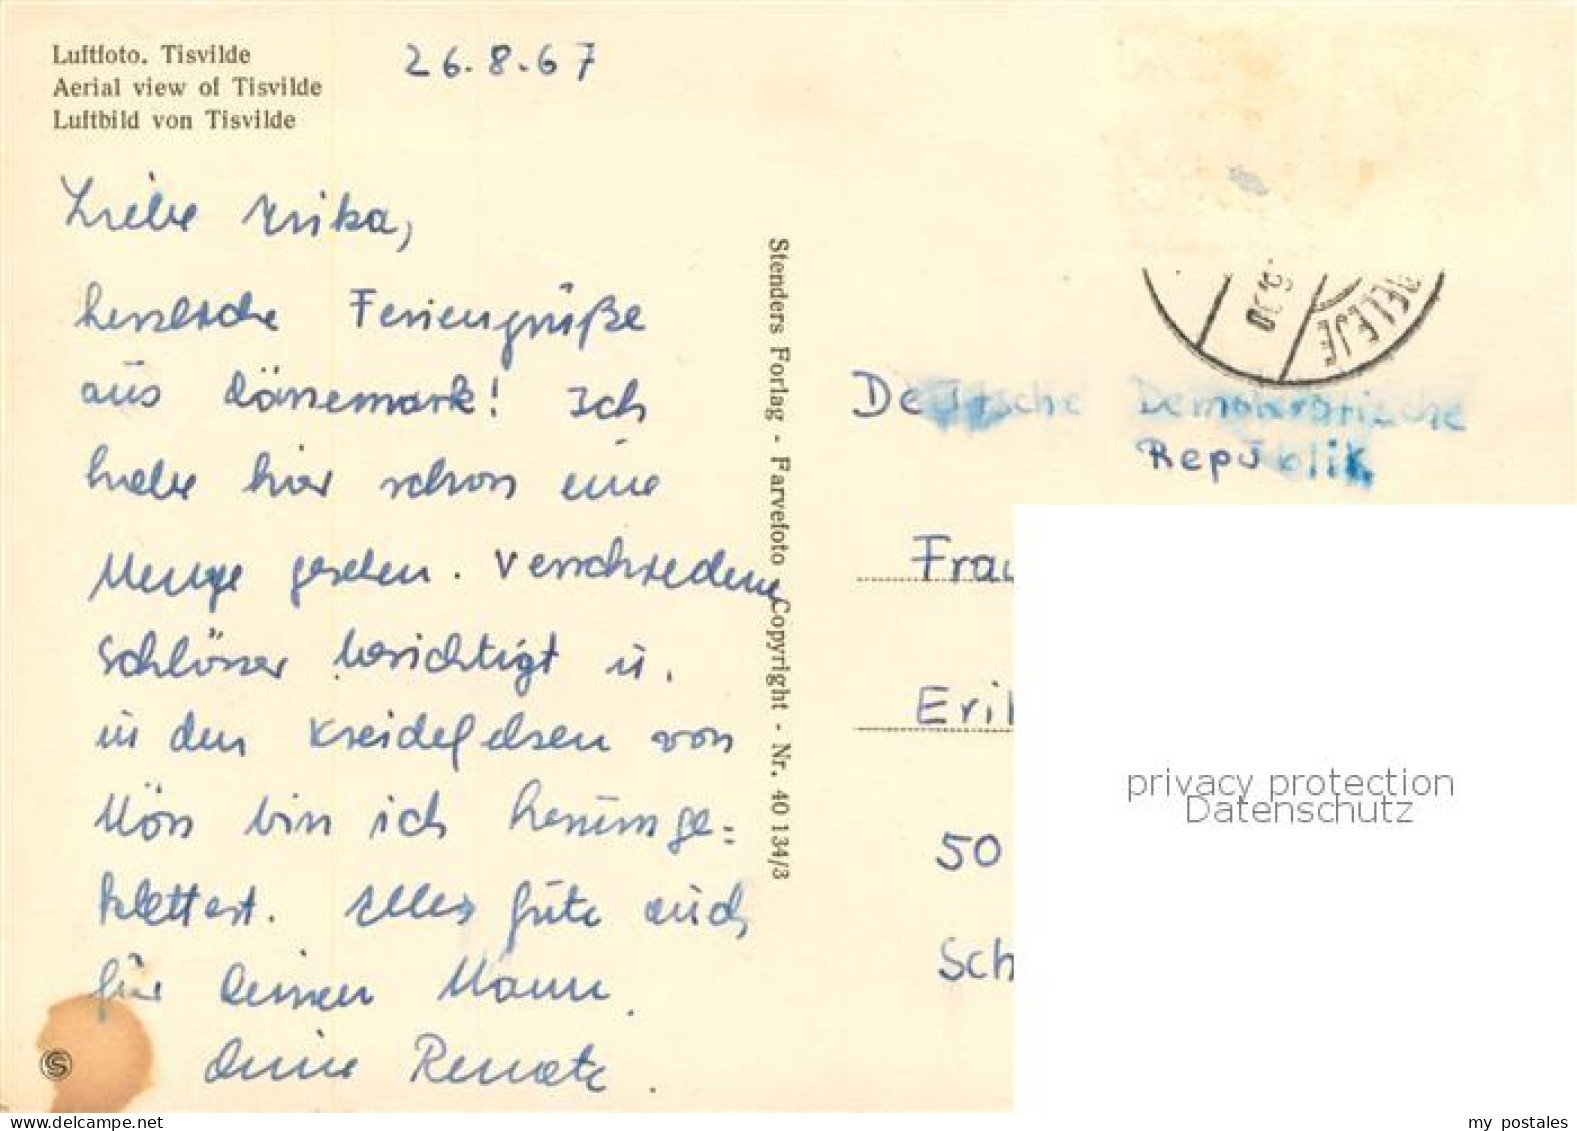 Luftfoto. Tisvilde
Aerial view of Tisvilde
Luftbild von Tisvilde
26.8.67
Liebe Erika,
herzliche Feriengrüße
aus Dänemark! Ich
habe hier schon eine
Menge gesehen. Verschiedene
Schlösser besichtigt u.
in den Kreidefelsen von
Mön bin ich herumge=
klettert. Alles Gute auch
für Deinen Mann.
Deine Renate.
Stenders Forlag - Farvefoto Copyright - Nr. 40 134/3
ELEJE
Deutsche Demokratische
Republik.
Frau
Erik
50
Sch
privacy protection
Datenschutz
S
my-postcards.net
my postales